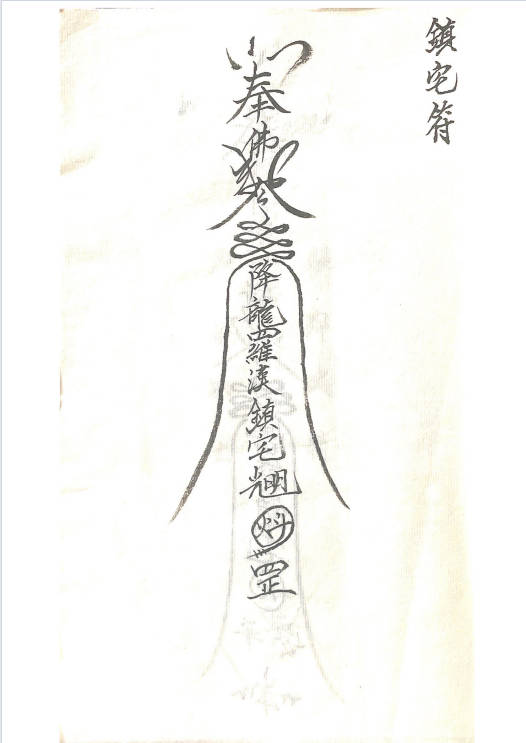 鎮宅符
奉
佛
降龍羅漢鎮宅光明
罡